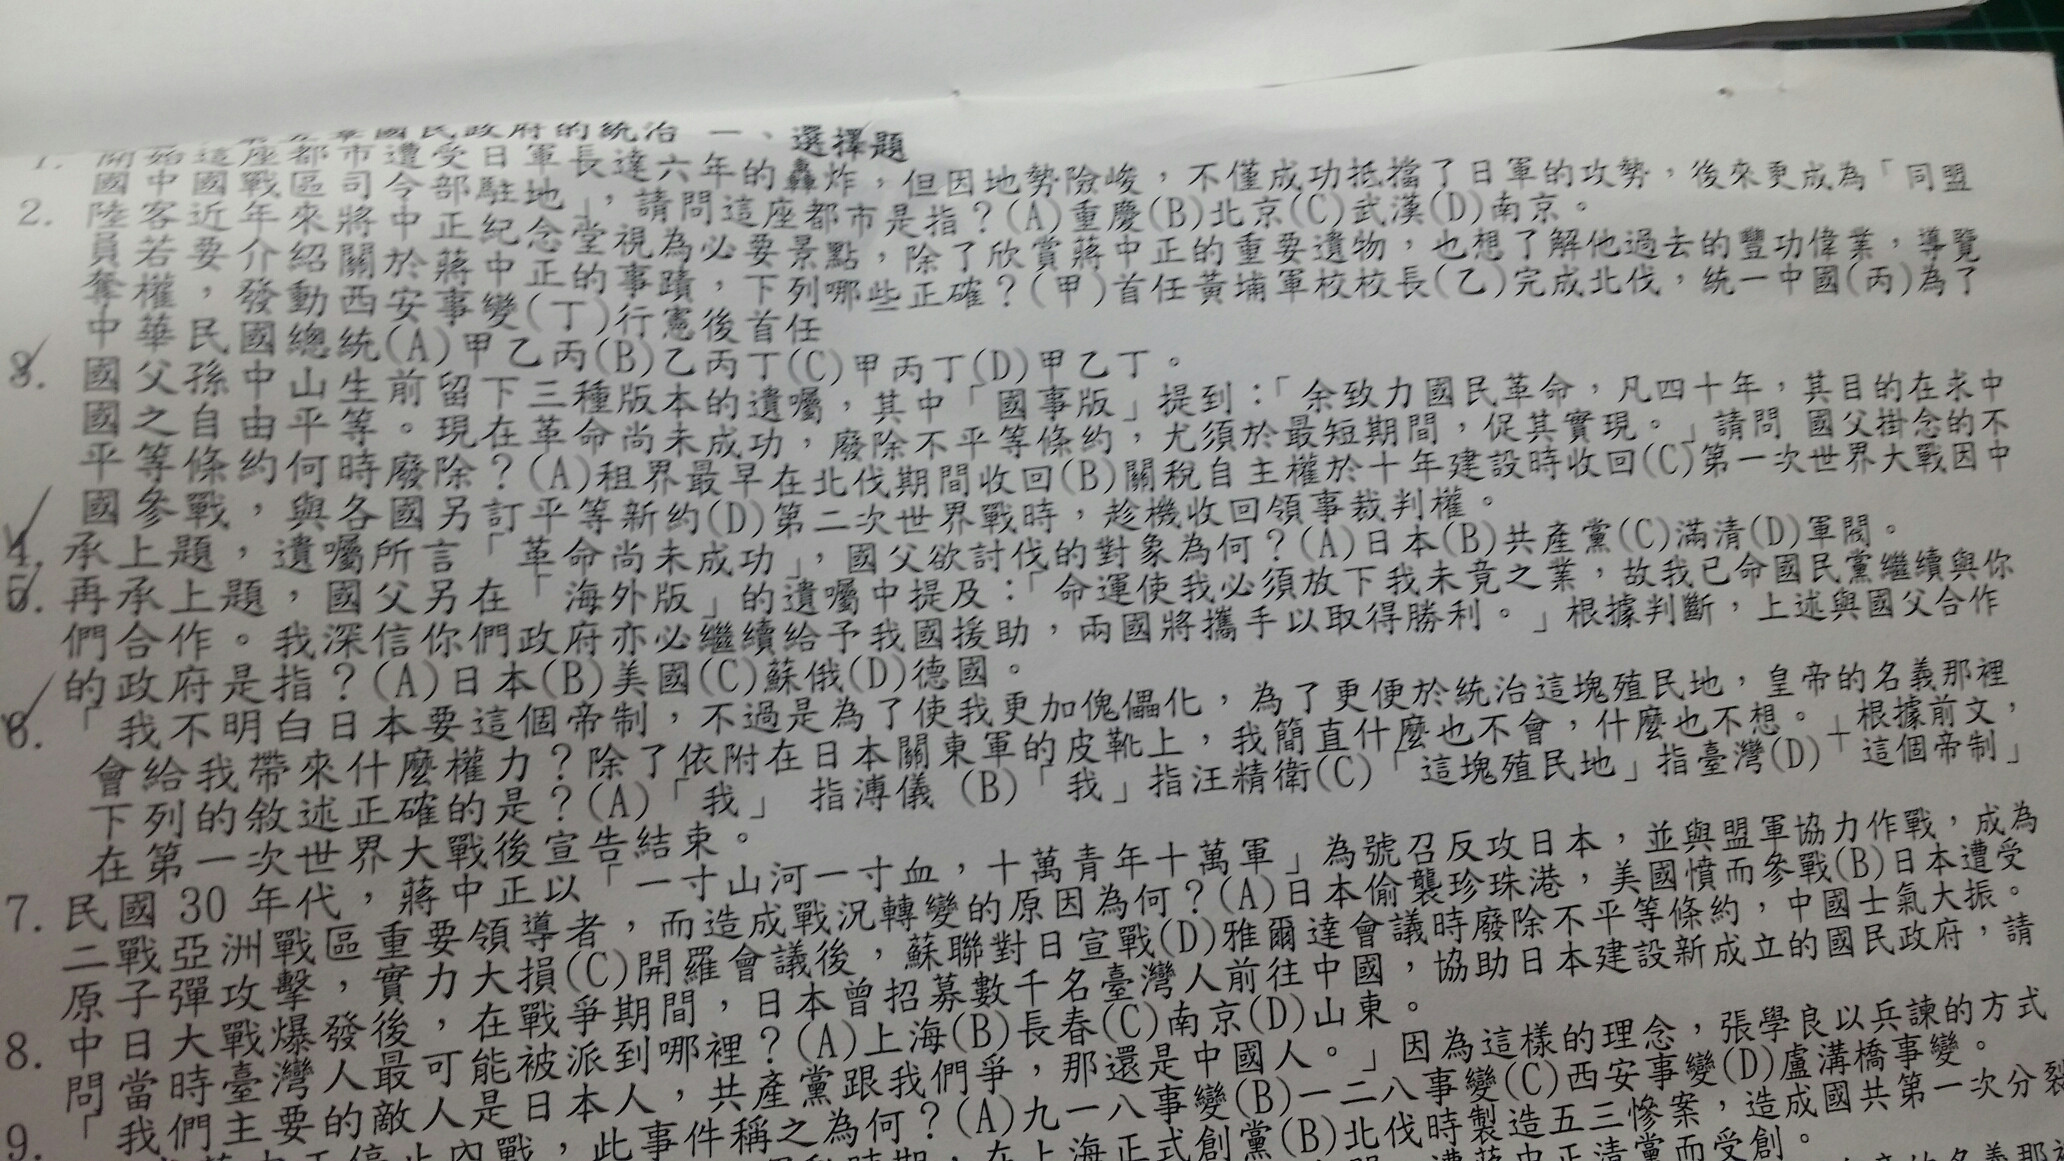 國民政府的統治 一、選擇題
1. 開始這座都市遭受日軍長達六年的轟炸，但因地勢險峻，不僅成功抵擋了日軍的攻勢，後來更成為「同盟
國中國戰區司令部駐地」，請問這座都市是指？(A)重慶(B)北京(C)武漢(D)南京。
2. 陸客近年來將中正紀念堂視為必要景點，除了欣賞蔣中正的重要遺物，也想了解他過去的豐功偉業，導覽
員若要介紹關於蔣中正的事蹟，下列哪些正確？(甲)首任黃埔軍校校長(乙)完成北伐，統一中國(丙)為了
奪權，發動西安事變(丁)行憲後首任
中華民國總統(A)甲乙丙(B)乙丙丁(C)甲丙丁(D)甲乙丁。
3. 國父孫中山生前留下三種版本的遺囑，其中「國事版」提到：「余致力國民革命，凡四十年，其目的在求中
國之自由平等。現在革命尚未成功，廢除不平等條約，尤須於最短期間，促其實現。」請問 國父掛念的不
平等條約何時廢除？(A)租界最早在北伐期間收回(B)關稅自主權於十年建設時收回(C)第一次世界大戰因中
國參戰，與各國另訂平等新約(D)第二次世界戰時，趁機收回領事裁判權。
4. 承上題，遺囑所言「革命尚未成功」，國父欲討伐的對象為何？(A)日本(B)共產黨(C)滿清(D)軍閥。
5. 再承上題，國父另在「海外版」的遺囑中提及：「命運使我必須放下我未竟之業，故我已命國民黨繼續與你
們合作。我深信你們政府亦必繼續給予我國援助，兩國將攜手以取得勝利。」根據判斷，上述與國父合作
的政府是指？(A)日本(B)美國(C)蘇俄(D)德國。
6. 「我不明白日本要這個帝制，不過是為了使我更加傀儡化，為了更便於統治這塊殖民地，皇帝的名義那裡
會給我帶來什麼權力？除了依附在日本關東軍的皮靴上，我簡直什麼也不會，什麼也不想。」根據前文，
下列的敘述正確的是？(A)「我」 指溥儀 (B)「我」指汪精衛(C)「這塊殖民地」指臺灣(D)「這個帝制」
在第一次世界大戰後宣告結束。
7. 民國 30 年代，蔣中正以「一寸山河一寸血，十萬青年十萬軍」為號召反攻日本，並與盟軍協力作戰，成為
二戰亞洲戰區重要領導者，而造成戰況轉變的原因為何？(A)日本偷襲珍珠港，美國憤而參戰(B)日本遭受
原子彈攻擊，實力大損(C)開羅會議後，蘇聯對日宣戰(D)雅爾達會議時廢除不平等條約，中國士氣大振。
8. 中日大戰爆發後，在戰爭期間，日本曾招募數千名臺灣人前往中國，協助日本建設新成立的國民政府，請
問當時臺灣人最可能被派到哪裡？(A)上海(B)長春(C)南京(D)山東。
9. 「我們主要的敵人是日本人，共產黨跟我們爭，那還是中國人。」因為這樣的理念，張學良以兵諫的方式
停止內戰，此事件稱之為何？(A)九一八事變(B)一二八事變(C)西安事變(D)盧溝橋事變。
在上海正式創黨(B)北伐時製造五三慘案，造成國共第一次分裂
遭蔣中正清黨而受創。